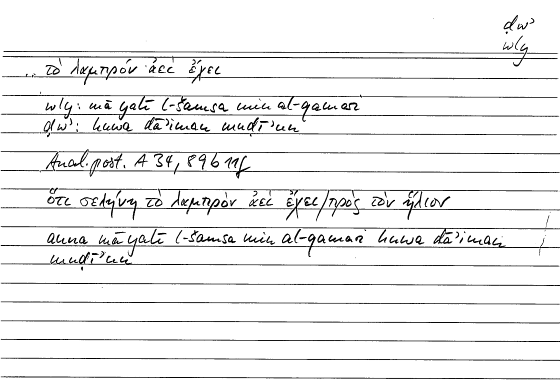 ḍwʾ
wly
.. τὸ λαμπρόν ἀεὶ ἔχει
wly: mā yalī l-šamsa min al-qamari
ḍwʾ: huwa dāʾiman muḍīʾun
Anal. post. A 34, 89b11f
ὅτι σελήνη τὸ λαμπρὸν ἀεὶ ἔχει/πρὸς τὸν ἥλιον
anna mā yalī l-šamsa min al-qamari huwa dāʾiman
muḍīʾun